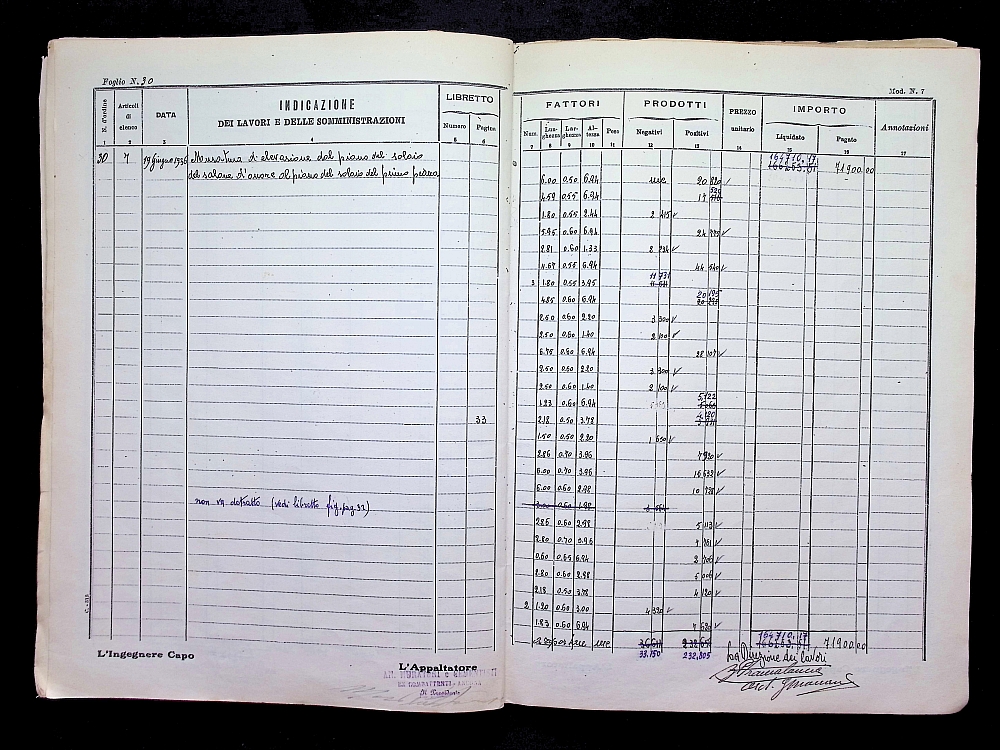 Foglio N. 30
Mod. N. 7
N. d'ordine
Articoli di elenco
DATA
INDICAZIONE
DEI LAVORI E DELLE SOMMINISTRAZIONI
LIBRETTO
Numero
Pagina
FATTORI
Num.
Lunghezza
Larghezza
Altezza
Peso
PRODOTTI
Negativi
Positivi
PREZZO unitario
IMPORTO
Liquidato
Pagato
Annotazioni
1 2 3 4 5 6 7 8 9 10 11 12 13 14 15 16 17
164710.17
166263.51 71900.00
30 7 19 giugno 1936 Muratura d'elevazione dal piano del solaio
del salone d'onore al piano del solaio del primo piano
6.00 0.50 6.94 mc 20 820
4.59 0.55 6.94 17
1.80 0.55 2.44 2 415
5.95 0.60 6.94 24 775
2.81 0.60 1.33 2
11.67 0.55 6.94 44 540
3 1.80 0.55 3.95 11 731
4.85 0.60 6.94 20 195
2.50 0.60 2.20 3 300
2.50 0.60 1.40 2 100
6.75 0.60 6.94 28 107
2.50 0.60 2.20 3 300
2.50 0.60 1.40 2 100
1.23 0.60 6.94 5.122
33 2.18 0.50 3.78 4.120
1.50 0.50 2.20 1 650
2.86 0.70 3.96 7 920
6.00 0.70 3.96 16 632
6.00 0.60 2.98 10 728
non va detratto (vedi libretto fig. pag. 32) 3.00 0.60 1.98 3 564
2.86 0.60 2.98 5 113
2.80 0.70 3.96 7 761
0.60 0.65 6.94 2 706
2.80 0.60 2.98 5 006
2.18 0.50 3.78 4 120
2 1.20 0.60 3.00 4 320
1.83 0.60 6.94 7 620
164710.17
166263.51 71900.00
33.150 232,805
C. - 318
L'Ingegnere Capo
L'Appaltatore
La Direzione dei lavori
Il Presidente